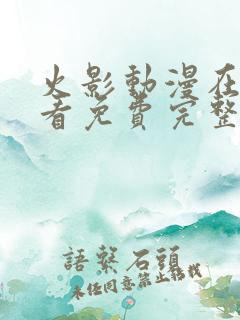 火影動漫在
看免費完整
語繫石頭
未經同意禁止轉載